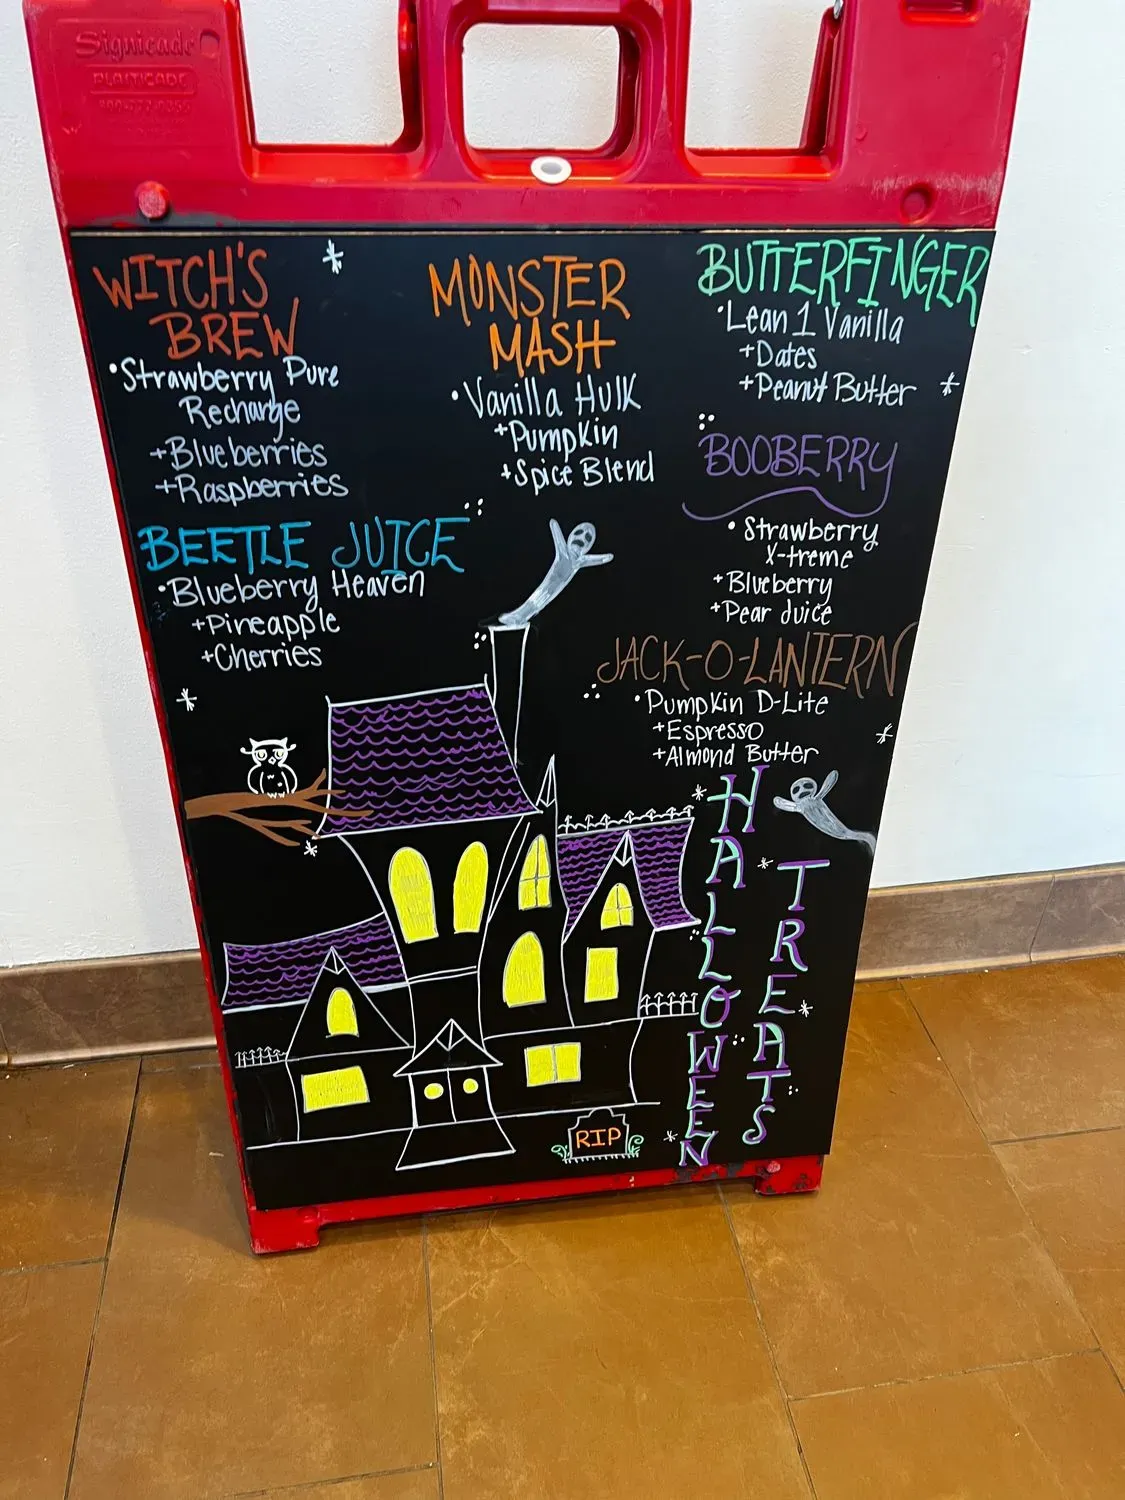 Signicade
PLASTICADE
WITCH'S
BREW
•Strawberry Pure
Recharge
+Blueberries
+Raspberries
MONSTER
MASH
•Vanilla Hulk
+Pumpkin
+Spice Blend
BUTTERFINGER
•Lean 1 Vanilla
+Dates
+Peanut Butter
BOOBERRY
•Strawberry
X-treme
+Blueberry
+Pear Juice
BEETLE JUICE
•Blueberry Heaven
+Pineapple
+Cherries
JACK-O-LANTERN
•Pumpkin D-Lite
+Espresso
+Almond Butter
HALLOWEEN
TREATS
RIP